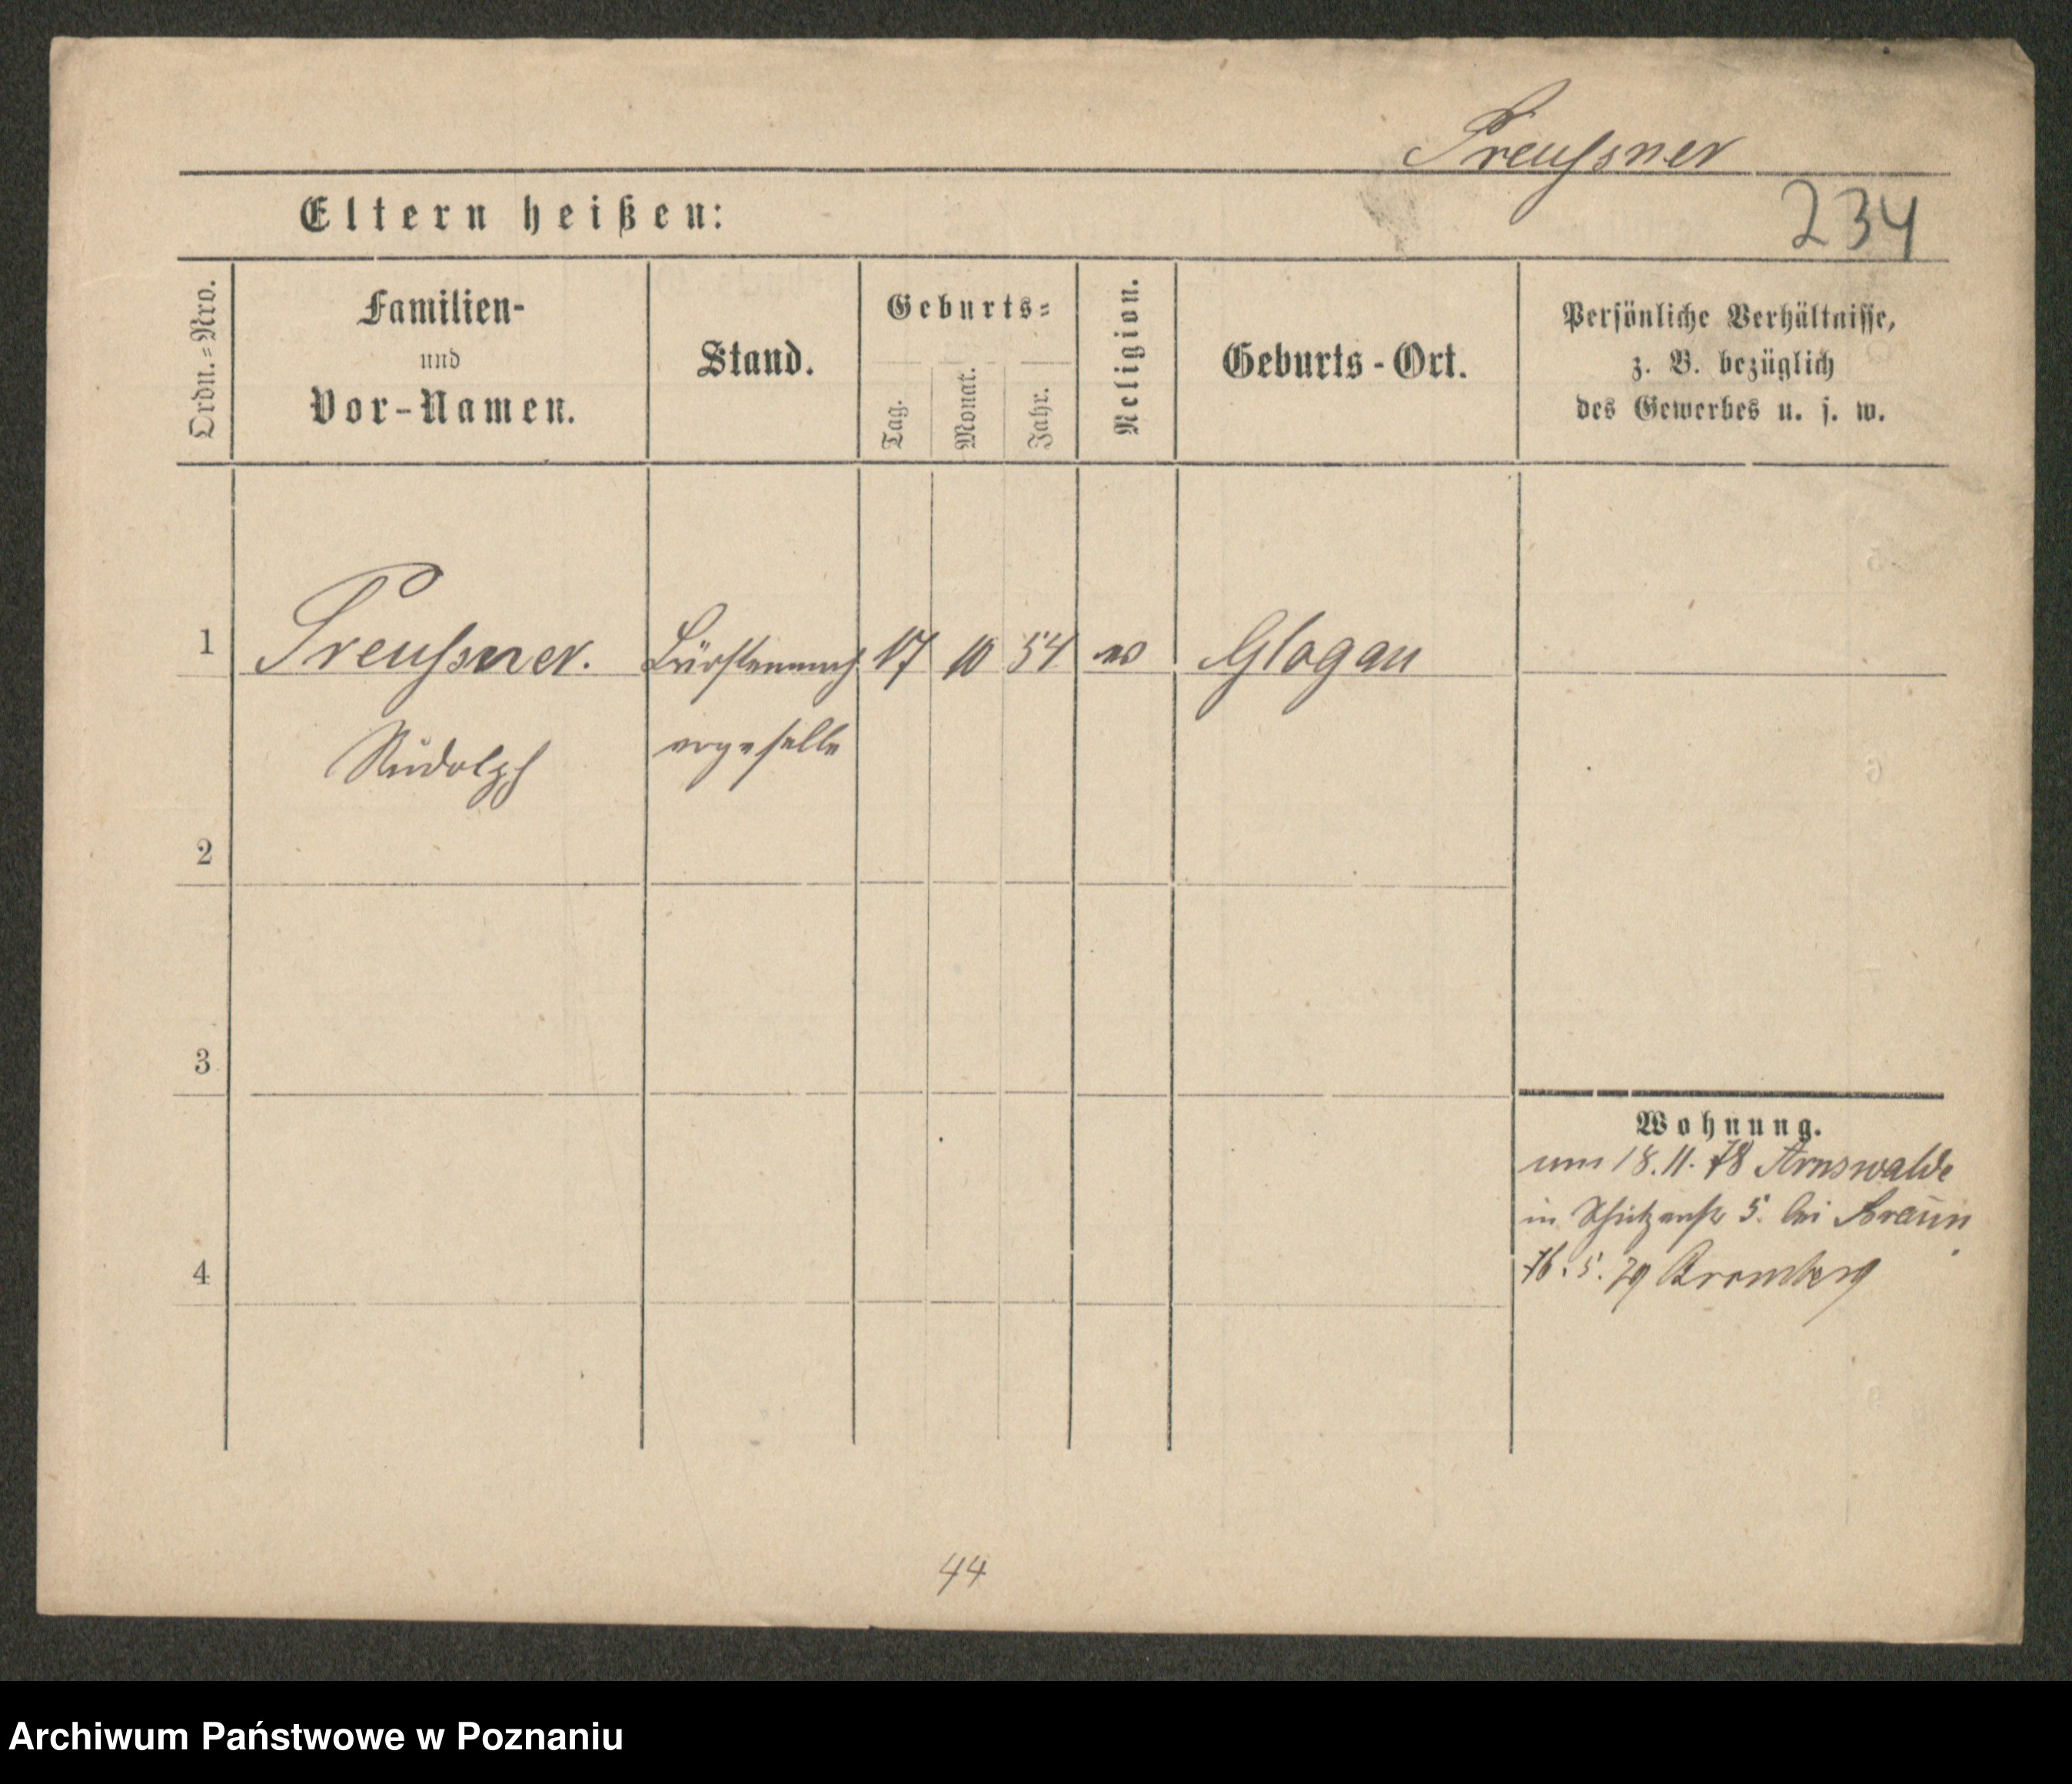 Preußner
234
Eltern heißen:
Ordn.-Nro.
Familien-
und
Vor-Namen.
Stand.
Geburts-
Tag.
Monat.
Jahr.
Religion.
Geburts-Ort.
Persönliche Verhältnisse,
z. B. bezüglich
des Gewerbes u. s. w.
1 Preußner. Bürstenmach 17 10 54 ev Glogau
Rudolph ergeselle
2
3
Wohnung.
18.11.78 Arnswalde
in Schützenstr 5. bei Braun
16.5.79 Bromberg
4
44
Archiwum Państwowe w Poznaniu